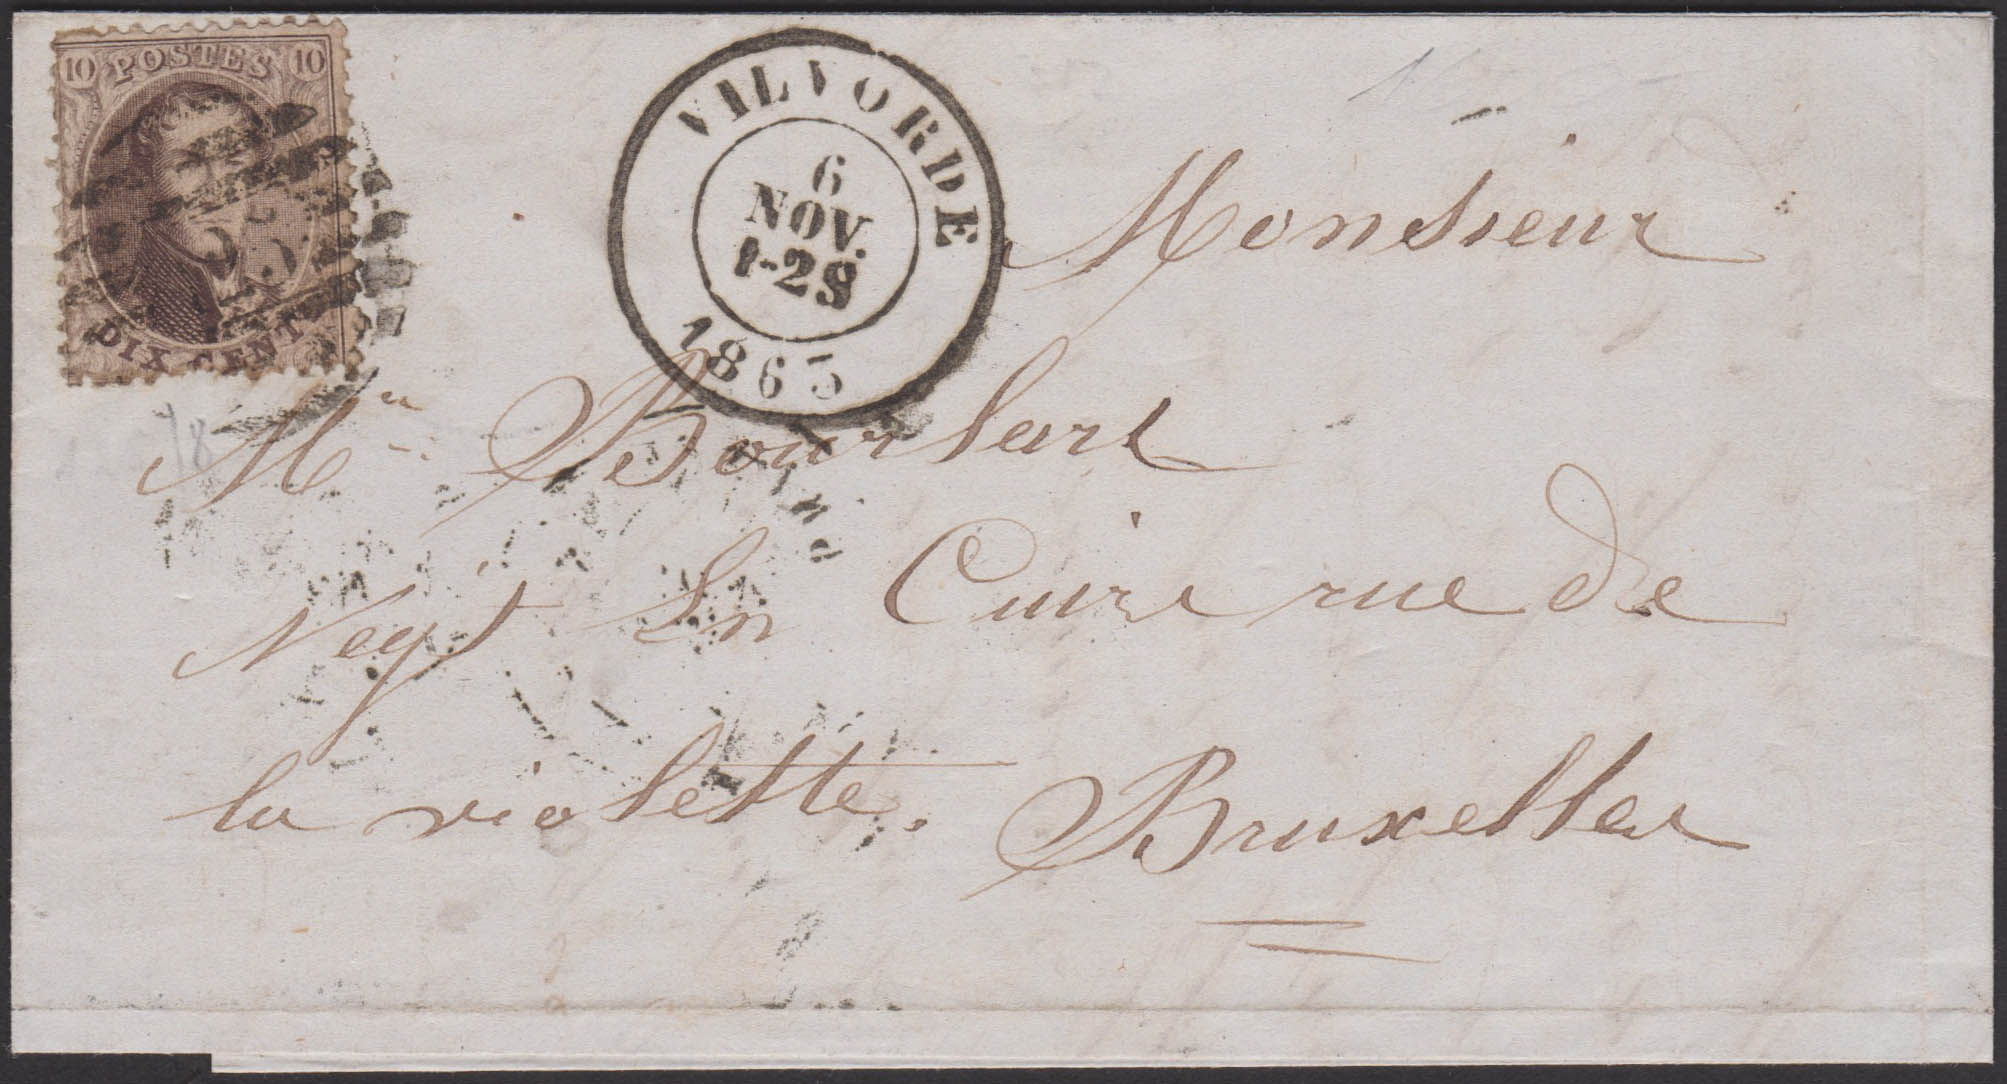 10 POSTES 10
DIX CENT
VILVORDE
6
NOV.
1-2S
1863
Monsieur
Mr Bourlart
Negt En Cuirs rue de
la violette. Bruxelles